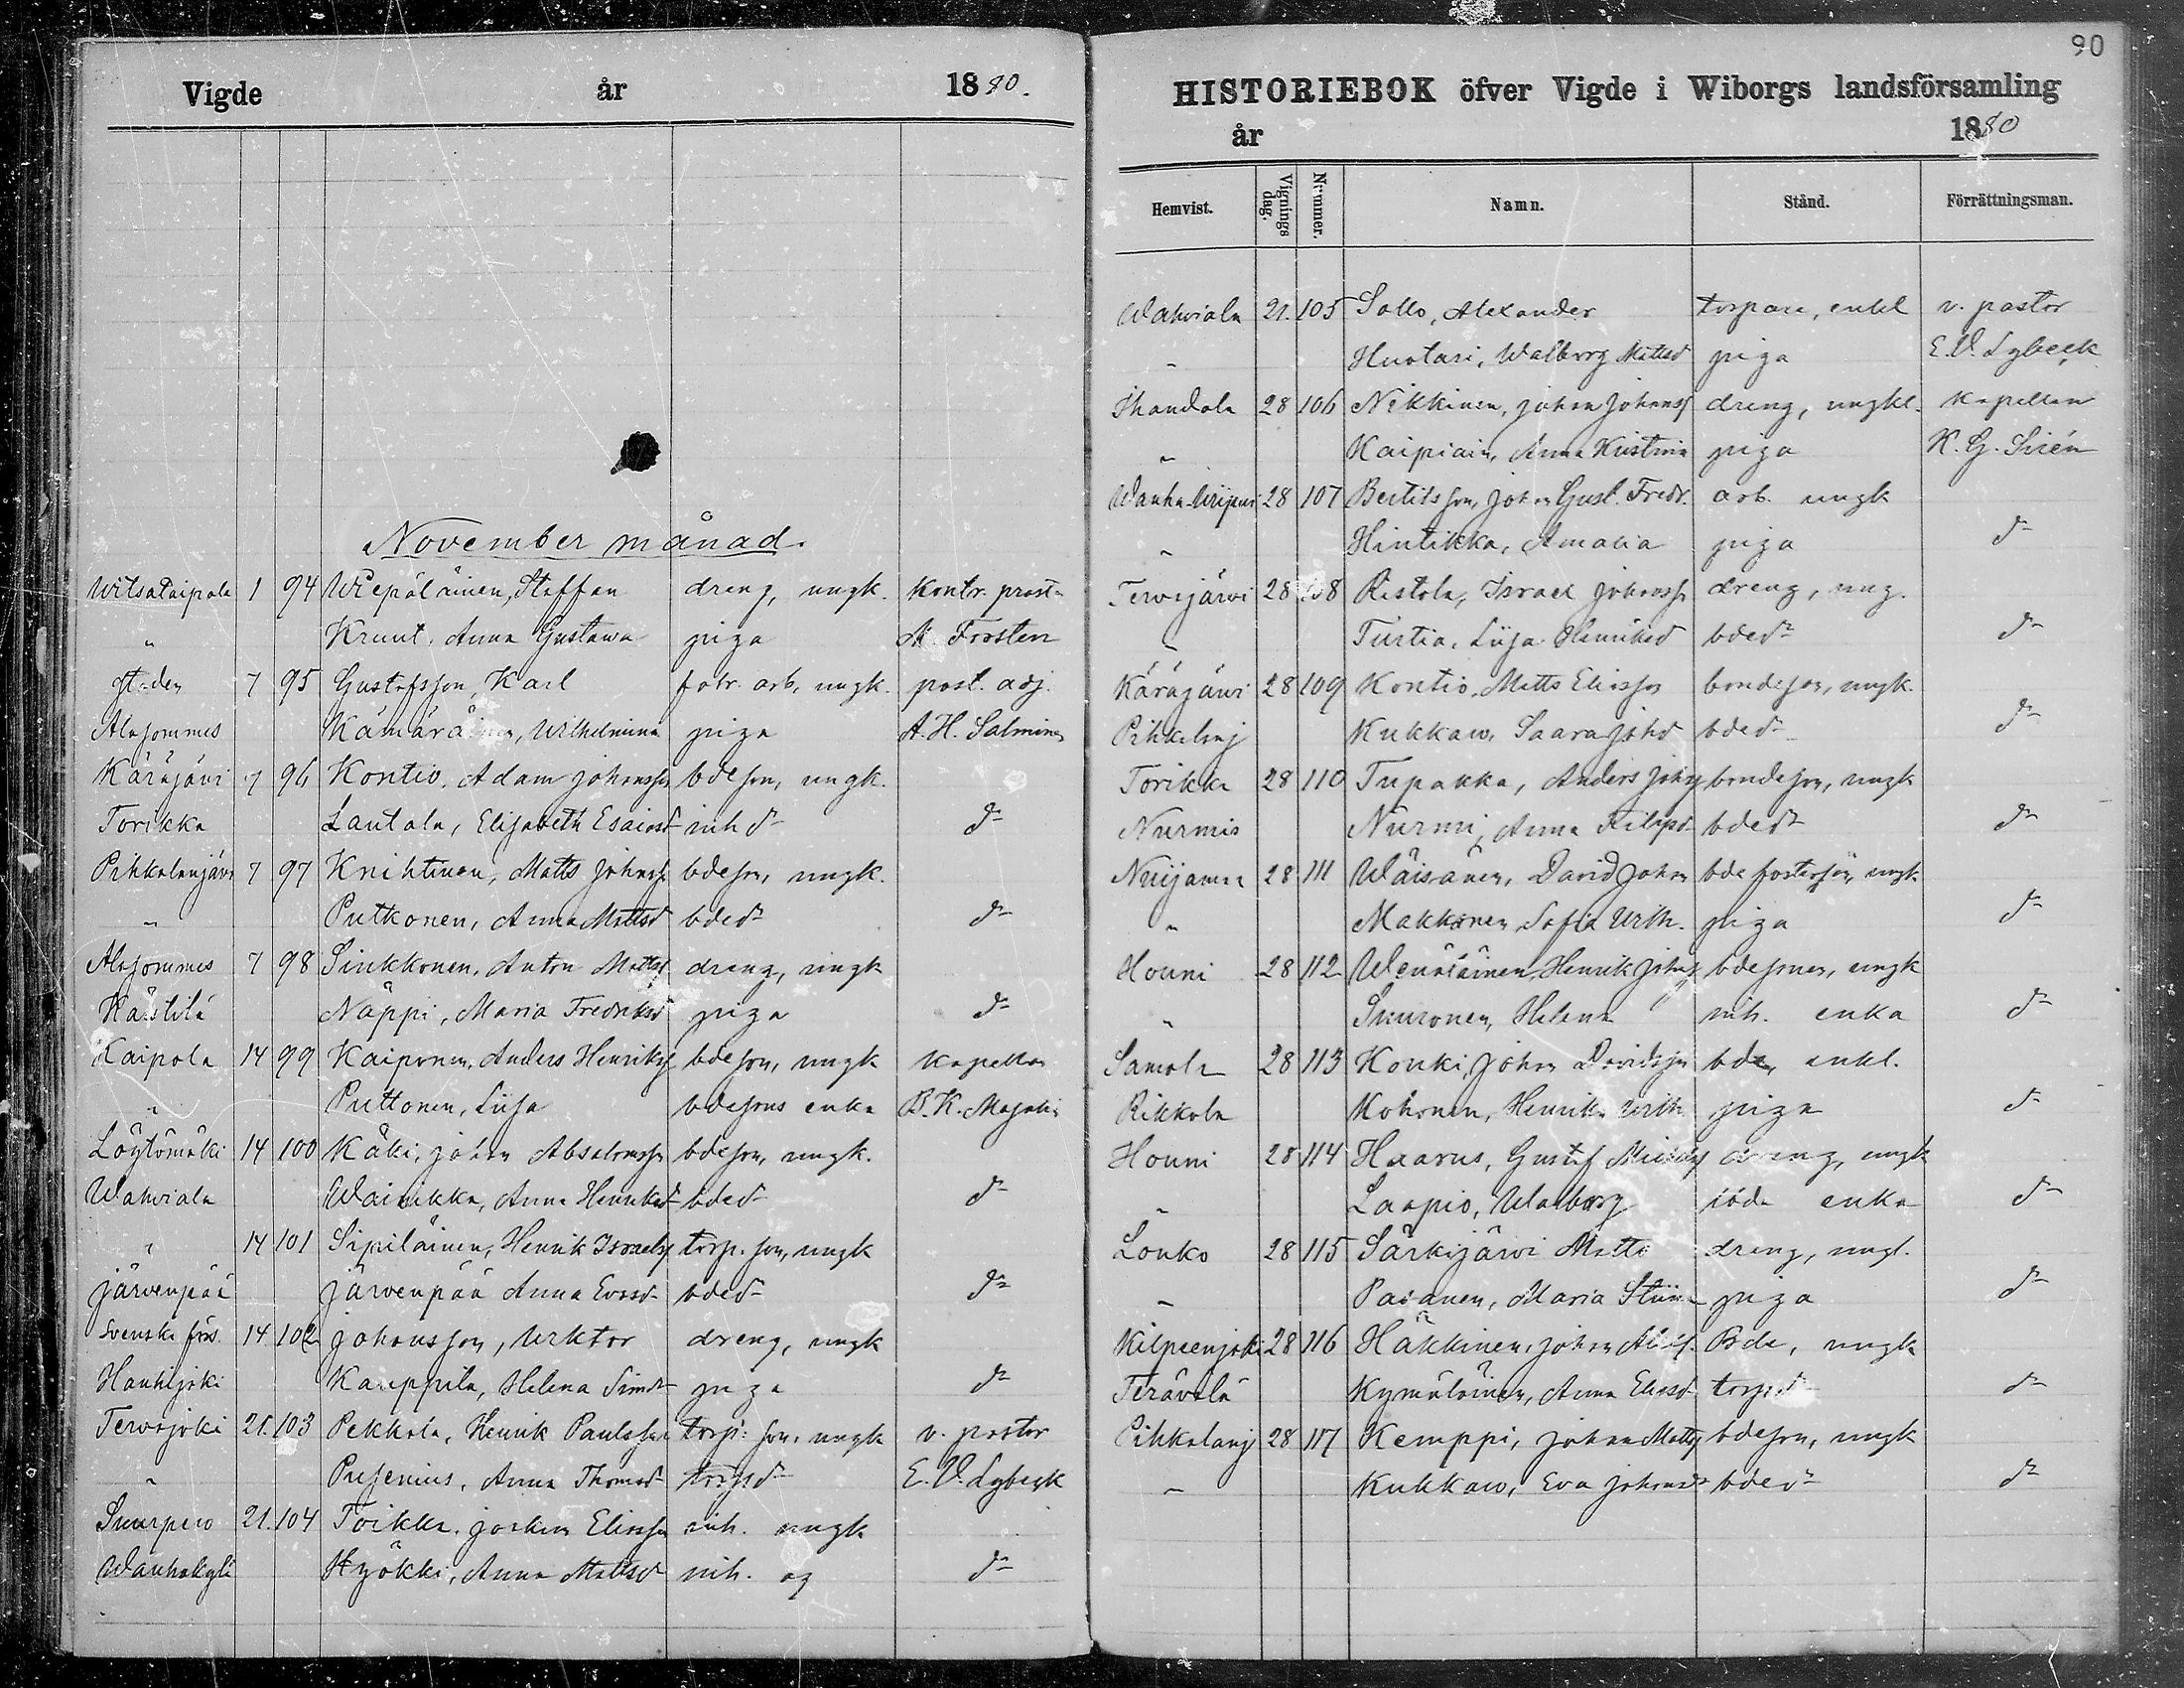 Vigde år 1880.
November månad.
Witsataipale 1 94 Wiepäläinen, Staffan dreng, ungk. Kontr. prost
" Kruut, Anna Gustawa piga M. Frosten
Staden 7 95 Gustafsson, Karl fabr. arb. ungk. past. adj.
Alasommes Kämäräinen, Wilhelmina piga A. H. Salminen
Käräjärwi 7 96 Kontio, Adam Johansson bdeson, ungk.
Torikka Lautala, Elisabeth Esaiasd inh d:r d:o
Pihkalanjärwi 7 97 Knihtinen, Matts Johanss bdeson, ungk.
" Putkonen, Anna Mattsd bded:r d:o
Alasommes 7 98 Sinkkonen, Anton Mattss dreng, ungk
Kärstilä Näppi, Maria Fredriksd piga d:o
Kaipola 14 99 Kaiponen, Anders Henrikss bdeson, ungk kapellan
" Puttonen, Liisa bdesons enka B. K.
Löytömäki 14 100 Käki, Johan Absalomsson bdeson, ungk.
Wahviala Wainikka, Anna Henriksd bded:r d:o
" 14 101 Sipiläinen, Henrik Israelss torp. son, ungk
Järvenpää Järvenpää Anna Evasd bded:r d:o
Svenska förs. 14 102 Johansson, Wiktor dreng, ungk
Hanhijoki Kauppila, Helena Simd:r piga d:o
Terwajoki 21. 103 Pekkola, Henrik Paulsson torp: son, ungk v. pastor
" Pusenius, Anna Thomasd torpd:r E. V. Lybeck
Suurpero 21. 104 Toikka, Joakim Eliasson inh. ungk
Wanhakylä Hyökki, Anna Mattsd inh. og d:o
90
HISTORIEBOK öfver Vigde i Wiborgs landsförsamling
år 1880
Hemvist. Vignings dag. Nummer. Namn. Stånd. Förrättningsman.
Wahviala 21. 105 Sallo, Alexander torpare, enkl v. pastor
" Huotari, Walborg Mattsd piga E. V. Lybeck
Ihandala 28 106 Nikkinen, Johan Johanss dreng, ungkl. kapellan
" Kaipiain, Anna Kristina piga K. G. Sirén
Wanha-Wiipuri 28 107 Bertilsson, Johan Gust. Fredr. arb. ungk
" Hintikka, Amalia piga d:o
Terwajärwi 28 108 Ristola, Israel Johanss dreng, ung.
" Turtia, Liisa Henriksd bded:r d:o
Käräjärwi 28 109 Kontio, Matts Eliasson bondeson, ungk.
Pihkalanj Kukkaro, Saara Johd bded:r d:o
Torikka 28 110 Tupakka, Anders Johss bondeson, ungk
Nurmis Nurmi, Anna Filipsd bded:r d:o
Nuijamaa 28 111 Wäisänen, David Johan bde fosterson, ungk
" Makkonen Sofia Wilh. piga d:o
Houni 28 112 Wenäläinen, Henrik Johss bdesonen, ungk
" Suuronen, Helena inh. enka d:o
Samola 28 113 Kouki, Johan Davidsson bde, enkl.
Rikkola Kohonen, Henrika Wilh. piga d:o
Houni 28 114 Haarus, Gustaf Mickelss dreng, ungk
" Laapio, Walborg enka d:o
Louko 28 115 Särkijärwi Matts dreng, ungk.
" Paianen, Maria Stiina piga d:o
Kilpeenjoki 28 116 Häkkinen, Johan Bde, ungk
Terävälä Kymäläinen, Anna Eliasd torpd:r d:o
Pihkalanj 28 117 Kemppi, Johan Mattss bdeson, ungk
" Kukkaro, Eva Johansd:r bded:r d:o